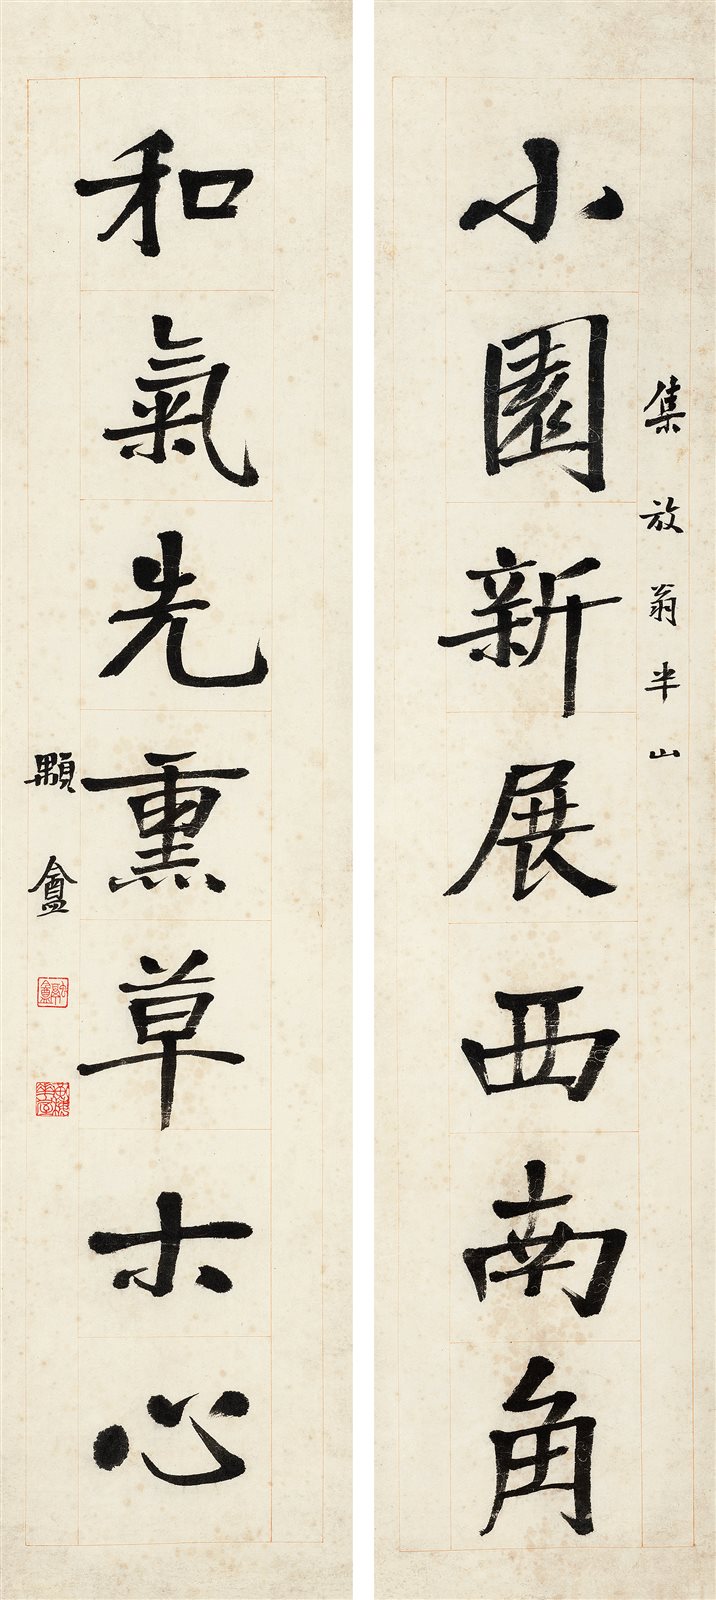 集放翁半山
小園新展西南角
和氣先熏草木心
顆盦